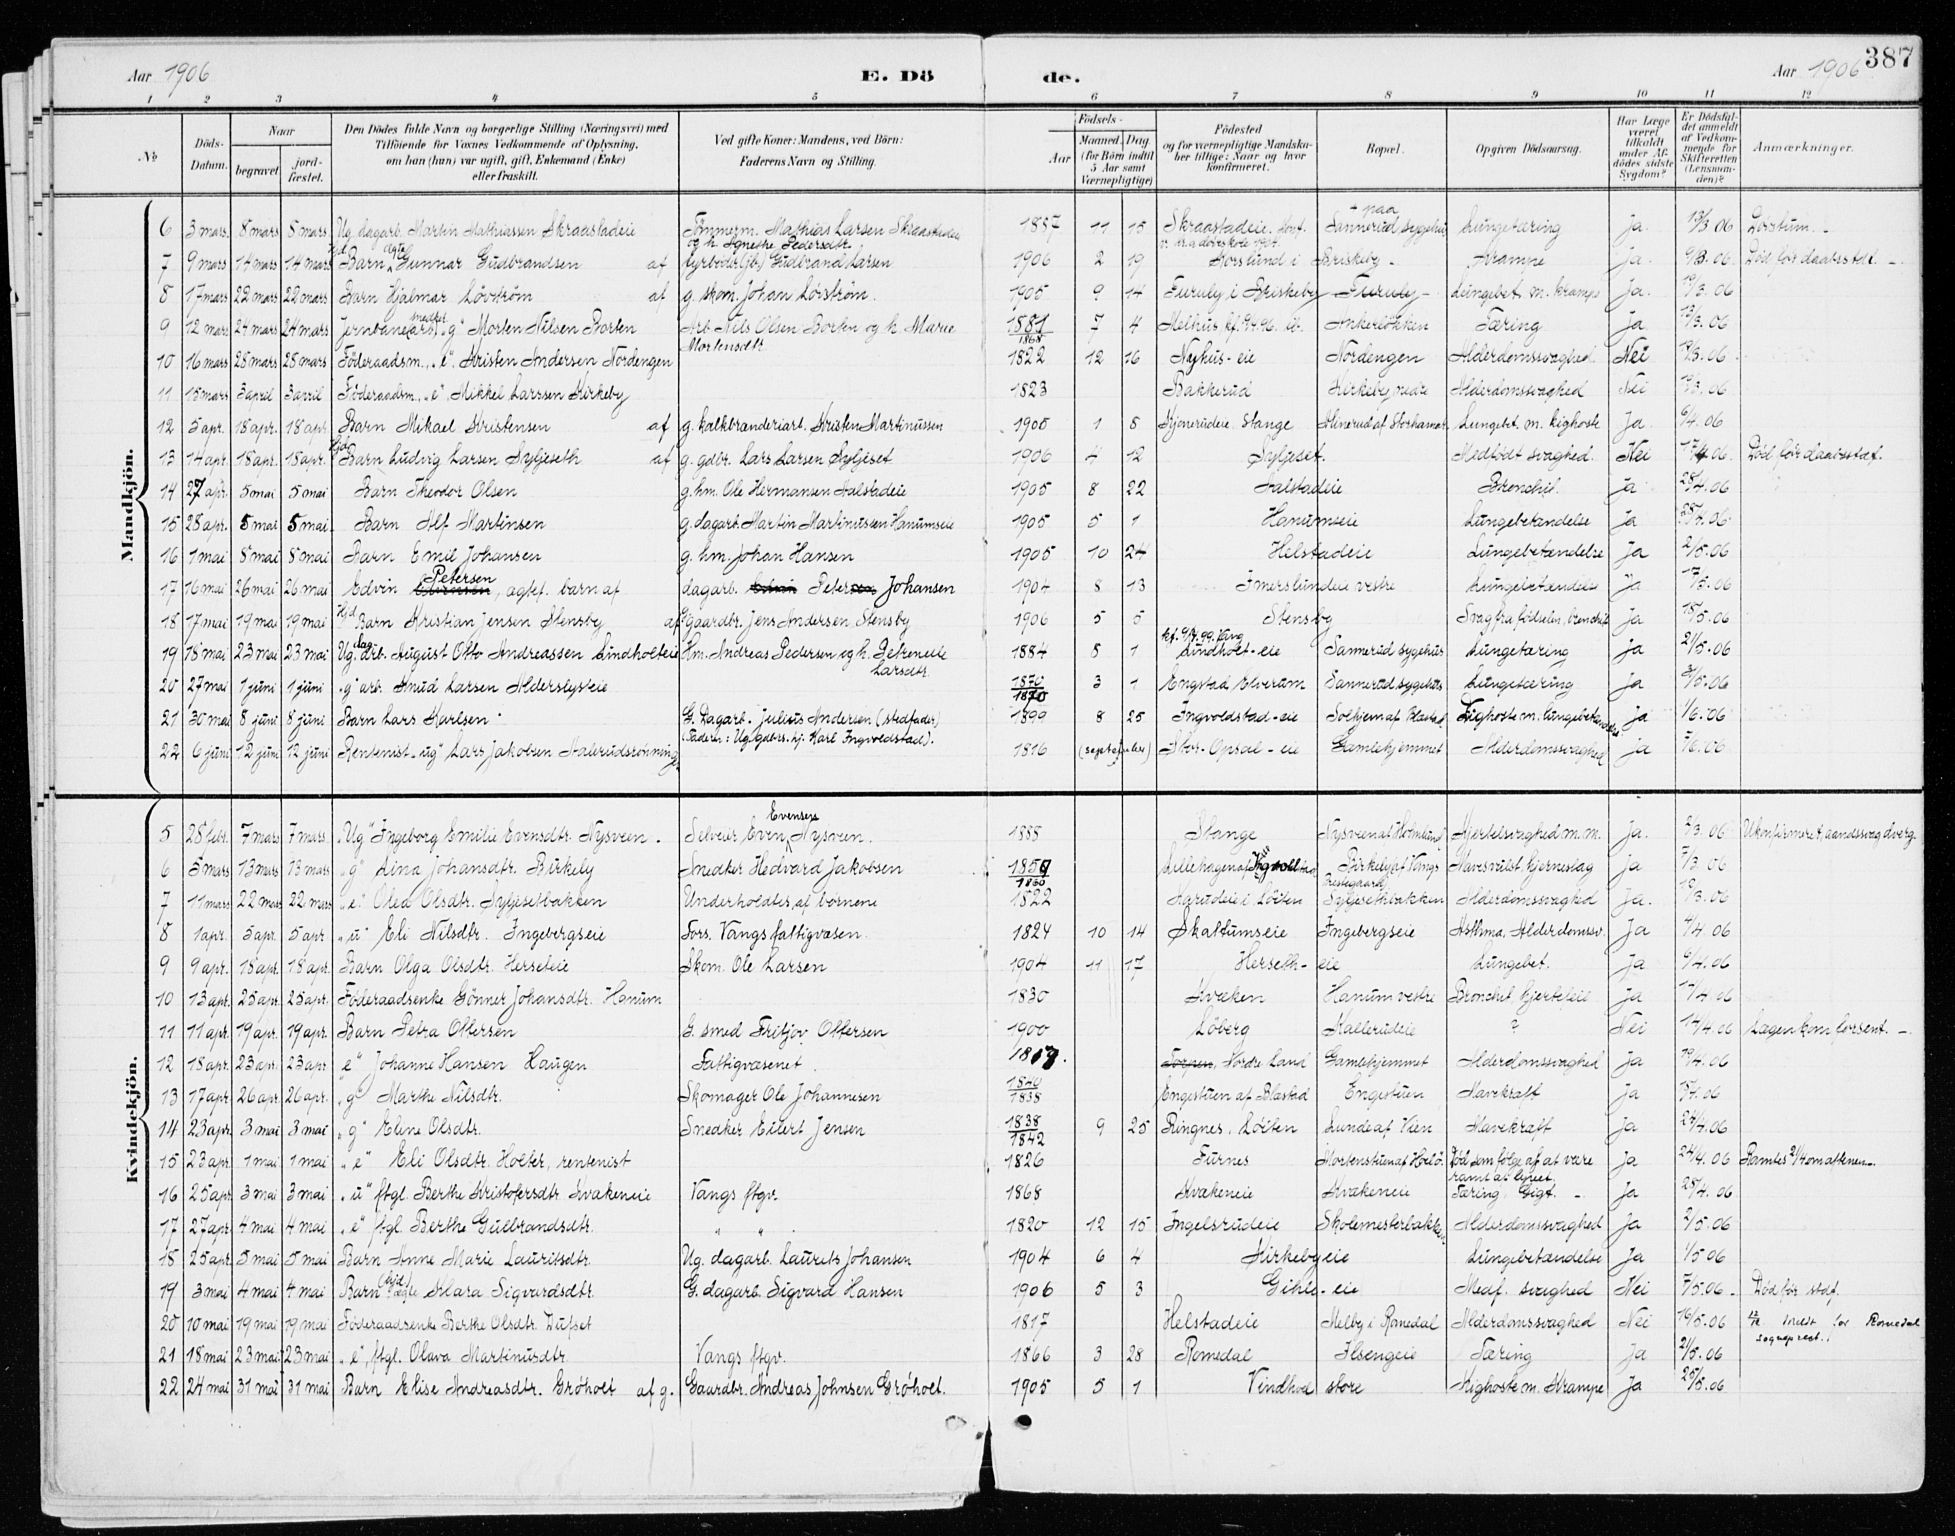 387
Aar 1906 E. Dö de. Aar 1906
1 2 3 4 5 6 7 8 9 10 11 12
№ Döds-Datum. Naar begravet jordfæstet. Den Dödes fulde Navn og borgerlige Stilling (Næringsvei) med Tilföiende for Voxnes Vedkommende af Oplysning, om han (hun) var ugift, gift, Enkemand (Enke) eller fraskilt. Ved gifte Koner: Mandens, ved Börn: Faderens Navn og Stilling. Födsels- Aar Maaned. Dag (for Börn indtil 5 Aar samt Værnepligtige) Födested og for værnepligtige Mandskaber tillige: Naar og hvor konfirmeret. Bopæl. Opgiven Dödsaarsag. Har Læge været tilkaldt under Afdödes sidste Sygdom? Er Dödsfaldet anmeldt af Vedkommende for Skifteretten (Lensmanden)? Anmærkninger.
Mandkjön.
6 3 mars 8 mars 8 mars Ug. dagarb. Martin Mathiassen Skraastadeie Tömmerm. Mathias Larsen Skraastadeie og h. Agnethe Pedersdtr. 1887 11 15 Skraastadeie. + paa Sannerud sygehus Lungetæring Ja. 13/3 06
7 9 mars 14 mars 14 mars Hjd. Barn, ægte Gunnar Gudbrandsen af fyrböder (jb.) Gudbrand Larsen 1906 2 19 Forslund i Briskeby - Krampe Ja. 9/3. 06. Död för daabsstdf. -
8 17 mars 22 mars 22 mars Barn Hjalmar Lövström af g. skom. Johan Lövström. 1905 9 14 Furuly i Briskeby Furuly - Lungebet. m. krampe Ja. 19/3. 06
9 12 mars 24 mars 24 mars Jernbanearb. „g" Morten Nilsen Borten Arb. Nils Olsen Borten og h. Marie Mortensdtr. 1881 1868 7 4 Melhus Ankerlökken Tæring Ja 13/3. 06
10 16 mars 28 mars 28 mars Föderaadsm., „e". Kristen Andersen Nordengen 1822 12 16 Nyhus-eie Nordengen Alderdomssvaghed Nei 19/3. 06.
11 15 mars 3 april 3 april Föderaadsm., „e". Mikkel Larssen Kirkeby 1823 Bakkerud Kirkeby nedre Alderdomssvaghed Nei 19/3. 06
12 5 apr. 18 apr. 18 apr. Barn Mikael Kristensen af g. kalkbrænderiarb. Kristen Martinussen 1905 1 8 Stange Lungebet. m. kighoste Ja. 6/4. 06
13 14 apr. 18 apr. 18 apr. Hjd. Barn Ludvig Larsen Syljeseth af g. gdbr. Lars Larsen Syljeset 1906 4 12 Syljeset. Medfödt svaghed Nei 17/4 06. Död för daabsstdf.
14 27 apr. 5 mai 5 mai Barn Theodor Olsen g. hm. Ole Hermansen Aalstadeie 1905 8 22 Aalstadeie Bronchit. Ja 28/4. 06
15 28 apr. 5 mai 5 mai Barn Alf Martinsen g. dagarb. Martin Martinussen Hanumseie 1905 5 1 Hanumseie Lungebetændelse Ja 28/4. 06.
16 1 mai 8 mai 8 mai Barn Emil Johansen g. hm. Johan Hansen 1905 10 24 Helstadeie Lungebetændelse Ja 2/5. 06
17 16 mai 26 mai 26 mai Edvin Petersen, ægtef. barn af dagarb. Edvin Petersen Johansen 1904 8 13 Imerslundeie vestre Lungebetændelse Ja 17/5. 06
18 17 mai 19 mai 19 mai Hjd Barn Kristian Jensen Stensby af Gaardbr. Jens Andersen Stensby 1906 5 5 Stensby Svag fra födselen, bronchit Ja 18/5. 06
19 18 mai 23 mai 23 mai Ug. dagarb. August Otto Andreassen Lindholteie Hm. Andreas Pedersen og h. Petrenelle Larsdtr. 1884 8 1 Lindholt-eie Sannerud sygehus Lungetæring Ja 21/5. 06
20 27 mai 1 juni 1 juni „g" arb. Knud Larsen Alderslysteie 1870 1870 3 1 Engstad, Elverum Sannerud sygehus Lungetæring Ja 31/5. 06
21 30 mai 8 juni 8 juni Barn Lars Karlsen G. Dagarb. Julius Andersen (stedfader) (Faderen: Ug. gdbrs. hj. Karl Ingvoldstad). 1899 8 25 Ingvoldstad-eie Solhjem af Blæstad Kighoste m. lungebetændelse Ja 1/6. 06
22 6 juni 12 juni 12 juni Rentenist „ug" Lars Jakobsen 1816 (september) Stor-Opsal-eie Gamlehjemmet Alderdomssvaghed Ja 7/6. 06
Kvindekjön.
5 28 febr. 7 mars 7 mars „Ug" Ingeborg Emilie Evensdtr. Nysveen. Selveier Even Evensen Nysveen. 1888 Stange Nysveen af Holmlund Hjertesvaghed m.m. Ja. 2/3. 06 Ukonfirmeret, aandssvag dverg.
6 5 mars 13 mars 13 mars „g" Lina Johansdtr. Birkely Snedker Hedvard Jakobsen 1859 1860 Birkely af Vangs Prestegaard Mavesvulst hjerneslag Ja 7/3 06
7 11 mars 22 mars 22 mars „e" Olea Olsdtr. Syljesetbakken Underholdtes af börnene 1822 Löiten Syljesethbakken Alderdomssvaghed Ja. 12/3. 06
8 1 apr. 5 apr. 5 apr. „u" Eli Nilsdtr. Ingebergseie Fors. Vangs fattigvæsen 1824 10 14 Skattumseie Ingebergseie Asthma, Alderdomssv. Ja 4/4. 06
9 9 apr. 18 apr. 18 apr. Barn Olga Olsdtr. Herseteie Skom. Ole Larsen 1904 11 17 Herseth-eie Lungebet. Ja 9/4. 06
10 13 apr. 25 apr. 25 apr. Föderaadsenke Gönner Johansdtr. Hanum 1830 Kvæken Hanum vestre Bronchit hjertefeil Ja 17/4 06
11 11 apr. 19 apr. 19 apr. Barn Petra Ottersen G. smed Fritjov Ottersen 1900 Löberg Kallerudeie ? Nei 17/4. 06 Lægen kom forsent. -
12 18 apr. 23 apr. 23 apr. „e" Johanne Hansen Haugen Fattigvæsenet 1817. Torpen, Nordre Land Gamlehjemmet Alderdomssvaghed Ja 19/4. 06
13 17 apr. 26 apr. 26 apr. „g" Marthe Nilsdtr. Skomager Ole Johannesen 1840 1838 Engestuen af Blæstad Engestuen Mavekræft Ja 18/4. 06
14 23 apr. 3 mai 3 mai „g" Eline Olsdtr. Snedker Eilert Jensen 1838 1842 9 25 Ringnes, Löiten Lunde af Vien Mavekræft Ja 24/4. 06
15 23 apr. 1 mai 1 mai „e" Eli Olsdtr. Holter, rentenist 1826 Furnes Död som fölge af at være ramt af lynet Ja 24/4. 06 Ramtes 21/4 om aftenen.
16 25 apr. 3 mai 3 mai „u" ftgl. Berthe Kristofersdtr. Kvækeneie Vangs ftgv. 1868 Kvækeneie Kvækeneie Tæring. Gigt. Ja 28/4. 06
17 27 apr. 4 mai 4 mai „e" ftgl. Berthe Gulbrandsdtr. " " 1820 12 15 Ingelsrudeie Skolemesterbakken Alderdomssvaghed Ja 2/5. 06
18 25 apr. 5 mai 5 mai Barn Anne Marie Lauritsdtr. Ug. dagarb. Laurets Johansen 1904 6 4 Kirkebyeie Lungebetændelse Ja 1/5 06
19 3 mai 4 mai 4 mai Barn (hjd.) ægte Klara Sigvardsdtr. G. dagarb. Sigvard Hansen 1906 5 3 Gihle-eie Medf. svaghed Nei 7/5. 06 - Död för stdf.
20 10 mai 19 mai 19 mai Föderaadsenke Berthe Olsdtr. Dufset 1817 Helstadeie Melby i Romedal Alderdomssvaghed Nei 16/5. 06 meldt for Romedal sogneprest.
21 18 mai 23 mai 23 mai „e", ftgl. Olava Martinusdtr. Vangs ftgv. 1866 3 28 Romedal Ilsengeie Tæring Ja 21/5. 06
22 24 mai 31 mai 31 mai Barn Elise Andreasdtr. Gröholt af g. Gaardbr. Andreas Johnsen Gröholt. 1905 5 1 Vindhol store Kighoste m. Krampe Ja 25/5. 06